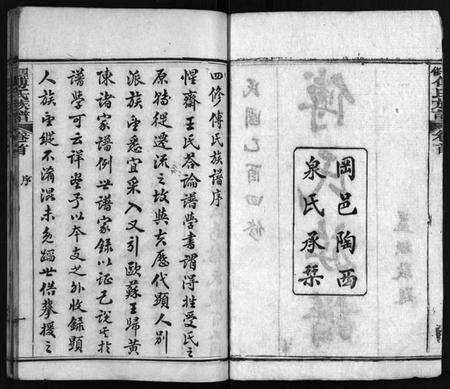 岡邑陶西
泉氏承槧
傅氏族譜
民國乙酉四修
四修傅氏族譜序
惺齋王氏答論譜學書謂得姓受氏之
原特從遷流之故與夫歷代顯人別
派族望悉宜采入又引歐蘇王歸黃
陳諸家譜例世譜家錄以證己說其於
譜學可云詳矣予以本支之外收錄顯
人族望縱不淆混未免蹈世俗攀援之
序